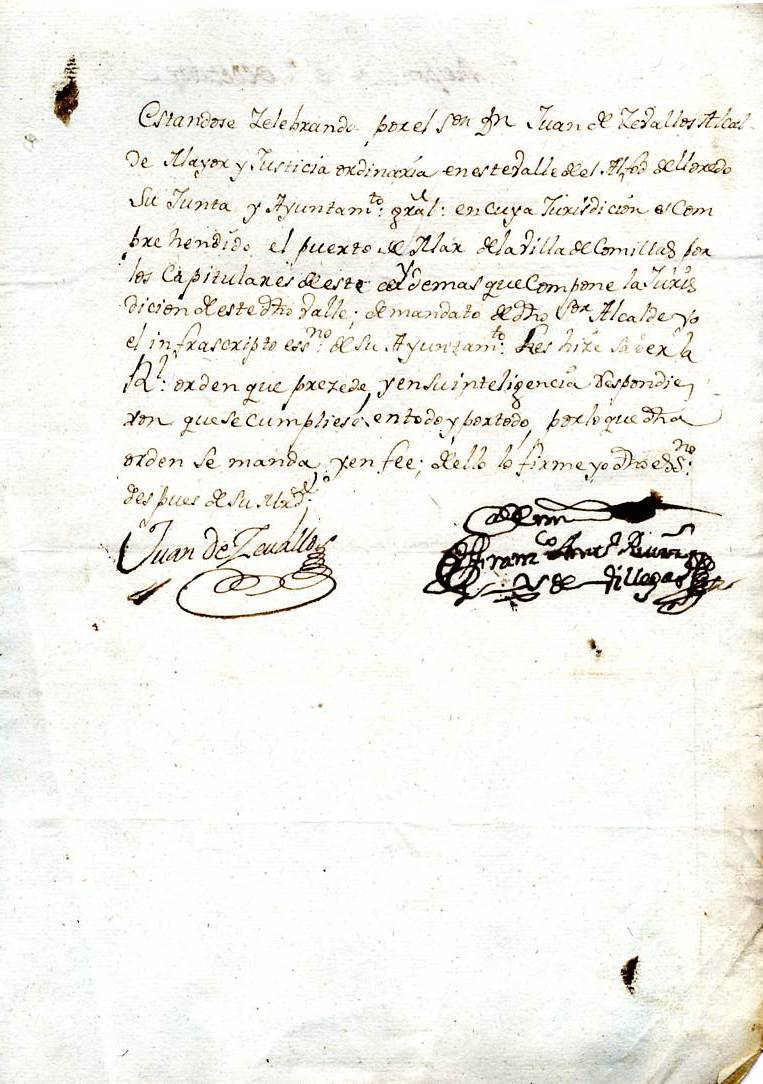 Estandose Zelebrando por el Sor Dn Juan de Zevallos Alcal-
de Mayor y Justicia ordinaria en este Valle de el Alfoz de lloredo
Su Junta y Ayuntamto: gral: en cuya Jurisdicion es Com
prehendido el puerto de Mar de la Villa de Comillas por
los Capitulares de este y demas que Compone la Juris
dicion de este dho Valle; de mandato de dho Sor Alcalde yo
el infrascripto essno: de su Ayuntamto: les hize saver la
Rl: orden que prezede, y en su inteligencia Respondie-
ron que se cumpliese, en todo y por todo, por lo que dha
orden se manda, y en fee; de ello lo firme yo dho essno:
despues de su Mrd:
Juan de Zevallos
Franco Anto
de Villegas